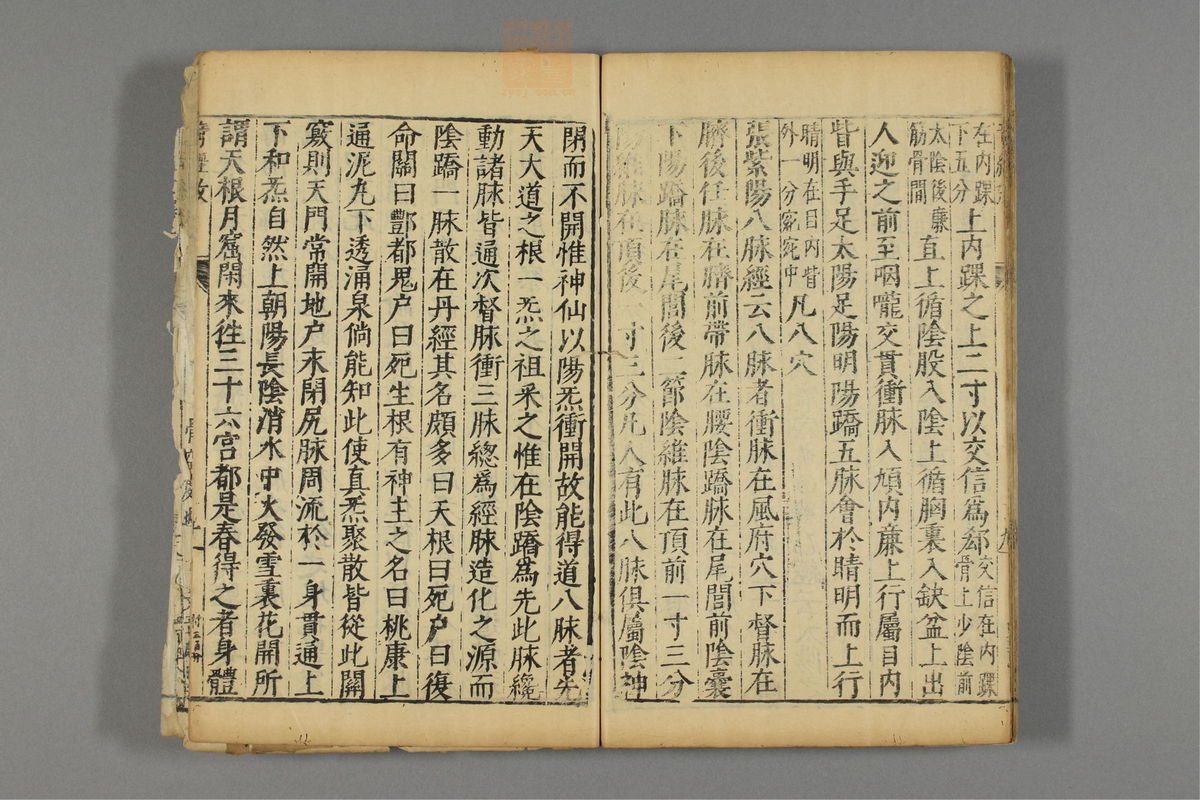 在內踝
下五分
上內踝之上二寸以交信爲郄
交信在內踝
骨上少陰前
太陰後廉
筋骨間
直上循陰股入陰上循胸裏入鈌盆上出
人迎之前至咽嚨交貫衝脉入頄內亷上行屬目內
眥與手足太陽足陽明陽蹻五脉會於睛明而上行
睛明在目內眥
外一分宛宛中
凡八穴
張紫陽八脉經云八脉者衝脉在風府穴下督脉在
臍後任脉在臍前帶脉在腰陰蹻脉在尾閭前陰囊
下陽蹻脉在尾閭後二節陰維脉在頂前一寸三分
陽維脉在頂後一寸三分凡人有此八脉俱屬陰神
閉而不開惟神仙以陽炁衝開故能得道八脉者先
天大道之根一炁之祖采之惟在陰蹻爲先此脉纔
動諸脉皆通次督脉衝三脉緫爲經脉造化之源而
陰蹻一脉散在丹經其名頗多曰天根曰死户曰復
命關曰酆都鬼户曰死生根有神主之名曰桃康上
通泥丸下透涌泉倘能知此使真炁聚散皆從此關
竅則天門常開地户永閉尻脉周流於一身貫通上
下和炁自然上朝陽長陰消水中火發雪裏花開所
謂天根月窟閑來徃三十六宮都是春得之者身體